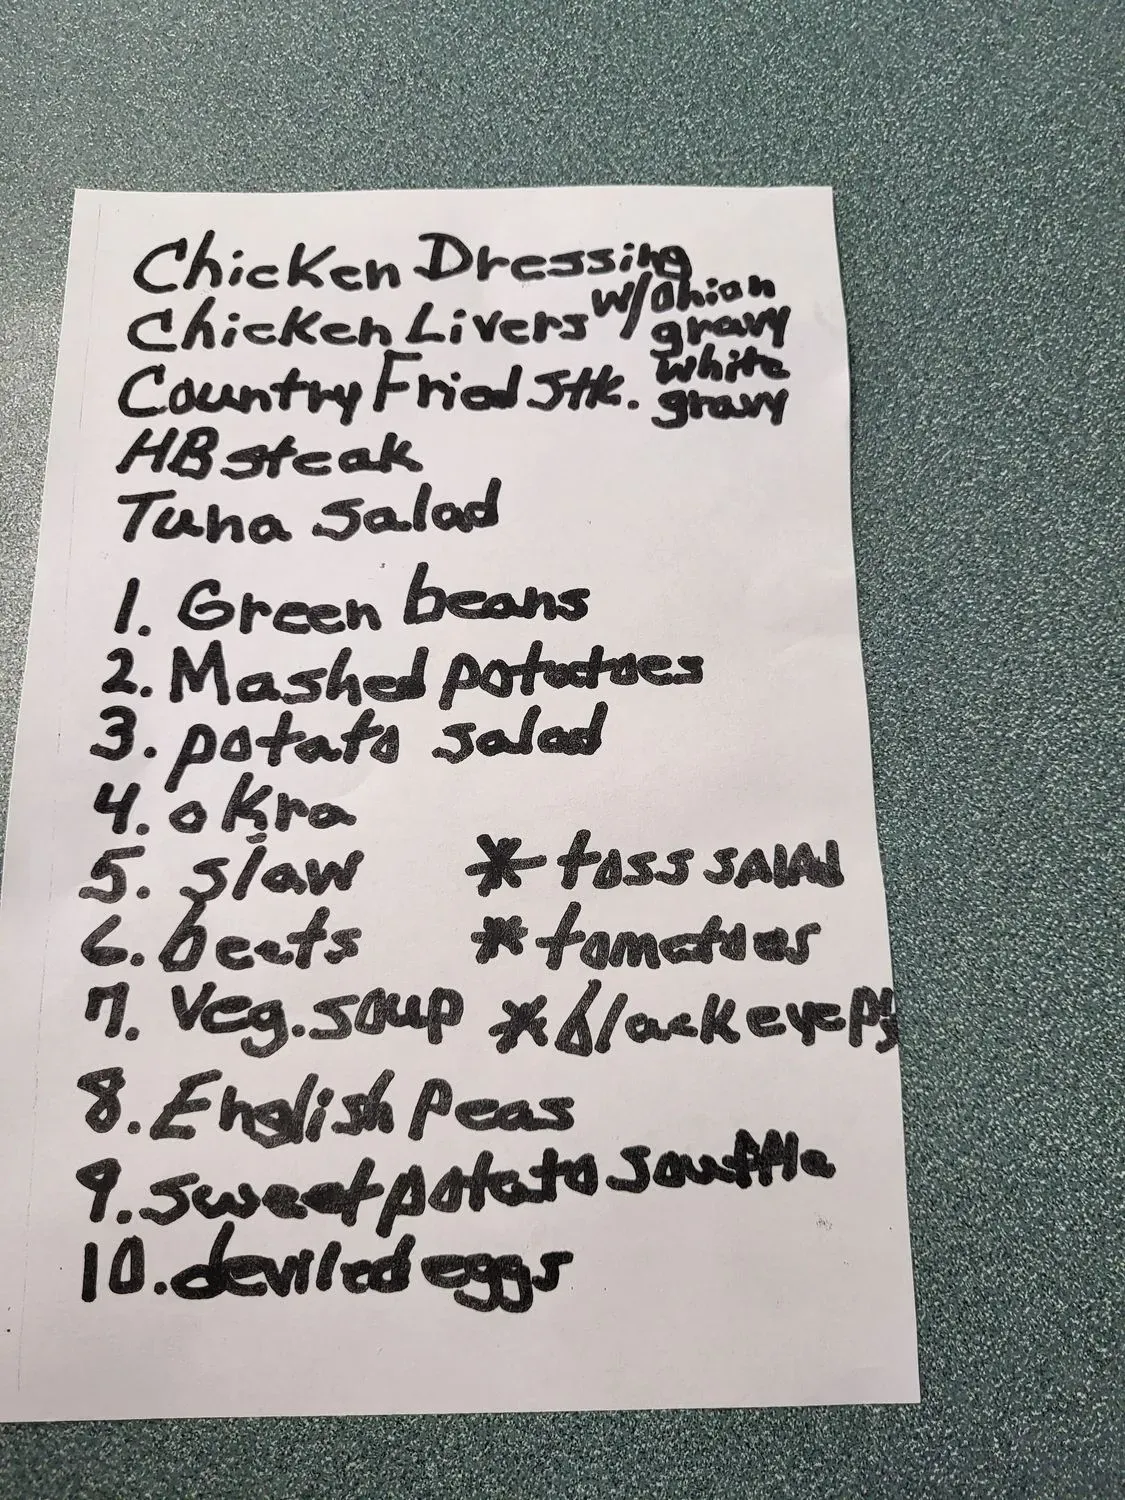 Chicken Dressing
Chicken Livers w/onion gravy
Country Fried Stk. white gravy
HB steak
Tuna Salad
1. Green beans
2. Mashed potatoes
3. potato salad
4. okra
5. slaw * toss SALAD
6. beets * tomatoes
7. Veg. soup * black eye p
8. English peas
9. sweet potato souffle
10. deviled eggs